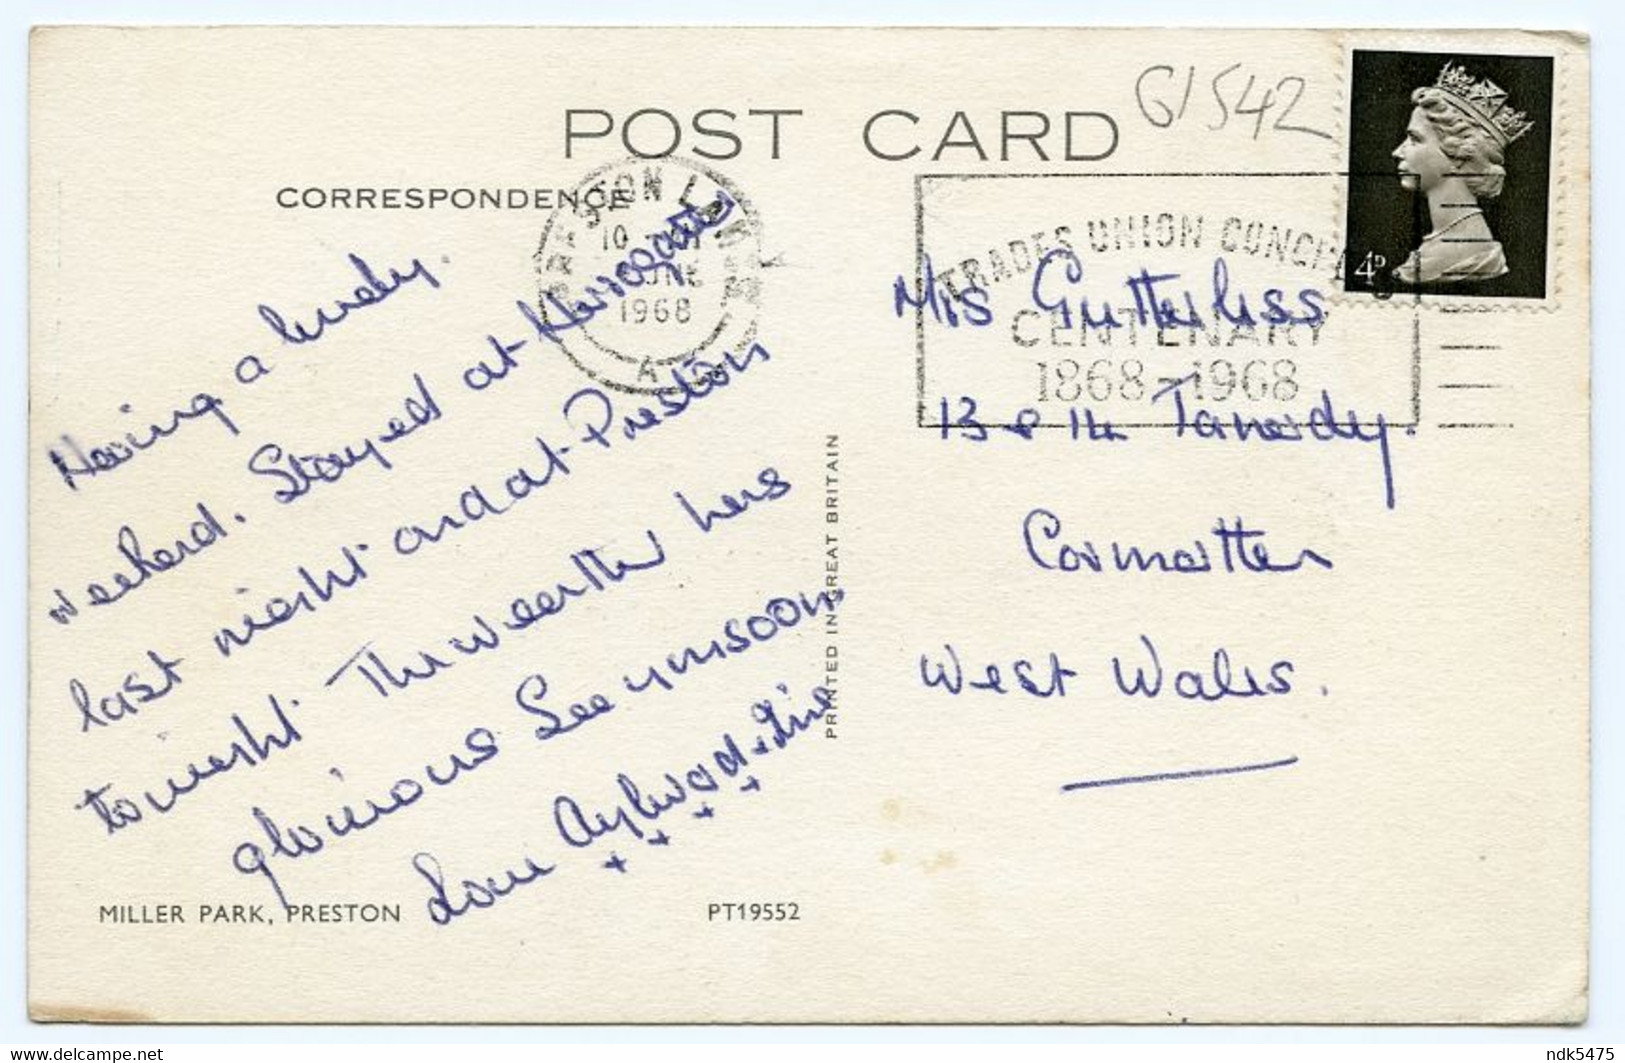 POST CARD
61542
CORRESPONDENCE
PRESTON LANCS
10
JUNE
1968
A
TRADES UNION CONGRESS
CENTENARY
1868-1968
4D
Having a lovely
weekend. Stayed at Harrogate
last night and at Preston
tonight The weather here
glorious See you soon
Love Aylward
+ + + +
Mrs
13 & 14
Carmarthen
West Wales.
PRINTED IN GREAT BRITAIN
MILLER PARK, PRESTON
PT19552
delcampe.net
ndk5475